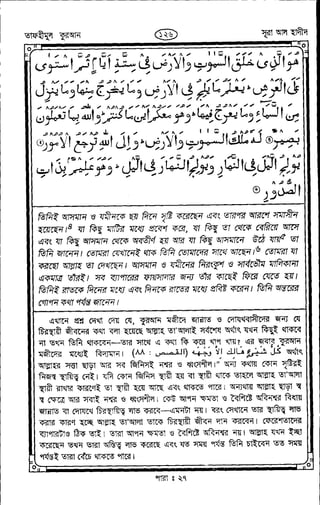 তাফহীমুল কুরআন
১২৬
সূরা আল হাদীদ
هُوَ الَّذِي خَلَقَ السَّمٰوٰتِ وَالْأَرْضَ فِي سِتَّةِ أَيَّامٍ ثُمَّ اسْتَوٰى
عَلَى الْعَرْشِ ۚ يَعْلَمُ مَا يَلِجُ فِي الْأَرْضِ وَمَا يَخْرُجُ مِنْهَا وَمَا يَنْزِلُ
مِنَ السَّمَاءِ وَمَا يَعْرُجُ فِيهَا ۖ وَهُوَ مَعَكُمْ أَيْنَ مَا كُنْتُمْ ۚ وَاللّٰهُ بِمَا تَعْمَلُونَ
بَصِيرٌ ۝ لَهُ مُلْكُ السَّمٰوٰتِ وَالْأَرْضِ ۚ وَإِلَى اللّٰهِ تُرْجَعُ الْأُمُورُ ۝
يُولِجُ اللَّيْلَ فِي النَّهَارِ وَيُولِجُ النَّهَارَ فِي اللَّيْلِ ۚ وَهُوَ عَلِيمٌ بِذَاتِ
الصُّدُورِ ۝
তিনিই আসমান ও যমীনকে ছয় দিনে সৃষ্টি করেছেন এবং তারপর আরশে সমাসীন
হয়েছেন।৪ যা কিছু মাটির মধ্যে প্রবেশ করে, যা কিছু তা থেকে বেরিয়ে আসে
এবং যা কিছু আসমান থেকে অবতীর্ণ হয় আর যা কিছু আসমানে উঠে যায়৫ তা
তিনি জানেন। তোমরা যেখানেই থাক তিনি তোমাদের সাথে আছেন।৬ তোমরা যা
করছো আল্লাহ তা দেখছেন। আসমান ও যমীনের নিরংকুশ ও সার্বভৌম মালিকানা
একমাত্র তাঁরই। সব ব্যাপারের ফায়সালার জন্য তাঁর কাছেই ফিরে যেতে হয়।
তিনিই রাতকে দিনের মধ্যে এবং দিনকে রাতের মধ্যে প্রবিষ্ট করেন। তিনি অন্তরের
গোপন কথা পর্যন্ত জানেন।
এখানে প্রশ্ন দেখা দেয় যে, কুরআন মজীদে জান্নাত ও দোযখবাসীদের জন্য যে
চিরস্থায়ী জীবনের কথা বলা হয়েছে আল্লাহ তা'আলাই সর্বশেষ অর্থাৎ যখন কিছুই থাকবে
না তখন তিনি থাকবেন—তার সাথে এ কথা কি করে খাপ খায়। এর জবাব কুরআন
মজীদের মধ্যেই বিদ্যমান। (القصص : ٨٨) كُلُّ شَيْءٍ هَالِكٌ إِلَّا وَجْهَهُ অর্থাৎ
আল্লাহর সত্তা ছাড়া আর সব জিনিসই নশ্বর ও ধ্বংসশীল।" অন্য কথায় কোন সৃষ্টিরই
নিজস্ব স্থায়িত্ব নেই। যদি কোন জিনিস স্থায়ী হয় বা স্থায়ী থাকে তাহলে আল্লাহ তা'আলা
স্থায়ী রাখার কারণেই তা স্থায়ী হয়ে আছে এবং থাকতে পারে। অন্যথায় আল্লাহ ছাড়া স্ব
স্ব ক্ষেত্রে আর সবাই নশ্বর ও ধ্বংসশীল। কেউ আপন ক্ষমতা ও বৈশিষ্টে অবিনশ্বর বিধায়
জান্নাত বা দোযখে চিরস্থায়িত্ব লাভ করবে—এমনটা নয়। বরং সেখানে তার স্থায়িত্ব লাভ
করার কারণ হচ্ছে আল্লাহ তা'আলা তাকে চিরস্থায়ী জীবন দান করবেন। ফেরেশতাদের
ব্যাপারটাও ঠিক তাই। তারা আপন ক্ষমতা ও বৈশিষ্টে অবিনশ্বর নয়। আল্লাহ যখন ইচ্ছা
করেছেন তখন তারা অস্তিত্ব লাভ করেছে এবং যত সময় পর্যন্ত তিনি চাইবেন তত সময়
পর্যন্তই তারা বেঁচে থাকতে পারে।
পারা : ২৭